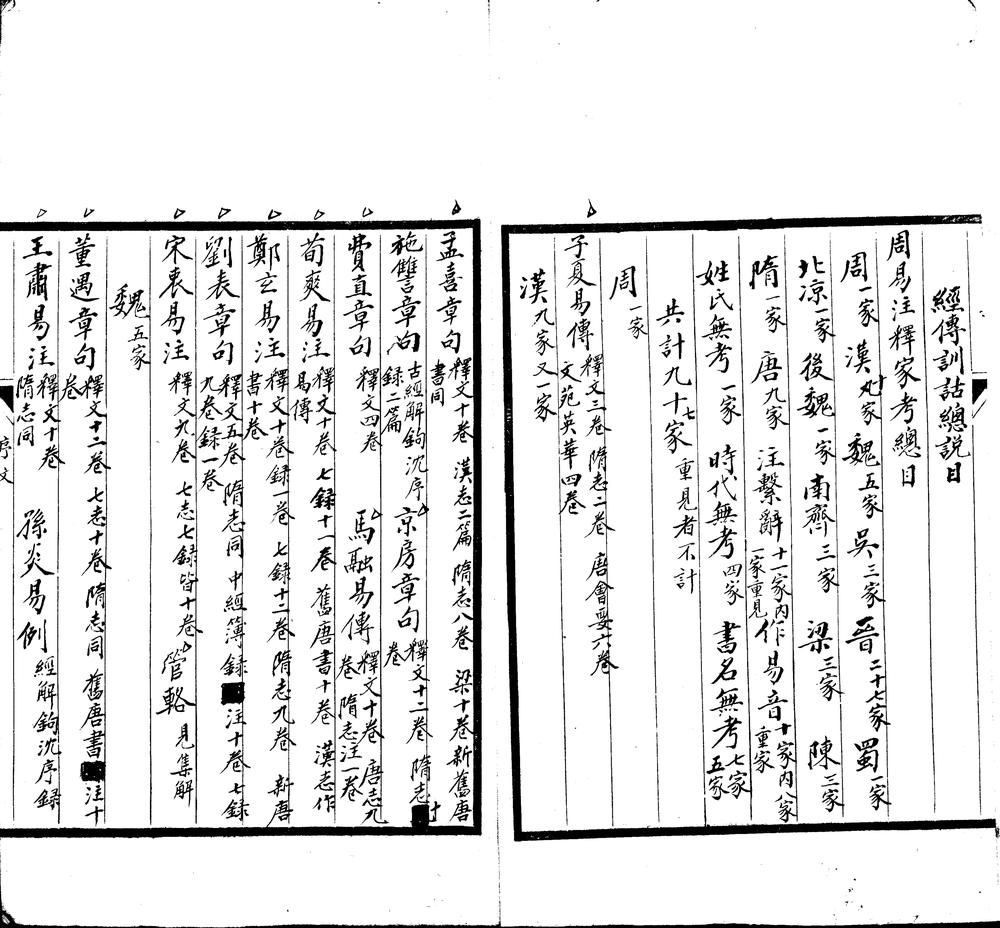 經傳訓詁總説目
周易注釋家考總目
周一家 漢十家 魏五家 吳三家 晉二十七家 蜀一家
北凉一家 後魏一家 南齊三家 梁三家 陳三家
隋一家 唐九家 注繫辭十一家内一家重見 作易音十家内八家重家
姓氏無考一家 時代無考四家 書名無考七家五家
共計九十七家 重見者不計
周一家
子夏易傳 釋文三卷 隋志二卷 唐會要六卷 文苑英華四卷
漢九家又一家
孟喜章句 釋文十卷 漢志二篇 隋志八卷 梁十卷新舊唐書同
施讐章句 古經解鉤沈序録二篇 京房章句 釋文十二卷 隋志十卷
費直章句 釋文四卷 馬融易傳 釋文十卷 唐志九卷 隋志注一卷
荀爽易注 釋文十卷 七録十一卷 舊唐書十卷 漢志作易傳
鄭玄易注 釋文十卷録一卷 七録十二卷 隋志九卷 新唐書十卷
劉表章句 釋文五卷 隋志同 中經簿録注十卷 七録九卷録一卷
宋衷易注 釋文九卷 七志七録皆十卷 管輅 見集解
魏五家
董遇章句 釋文十二卷 七志十卷 隋志同 舊唐書注十卷
王肅易注 釋文十卷 隋志同 孫炎易例 經解鉤沈序録
序文